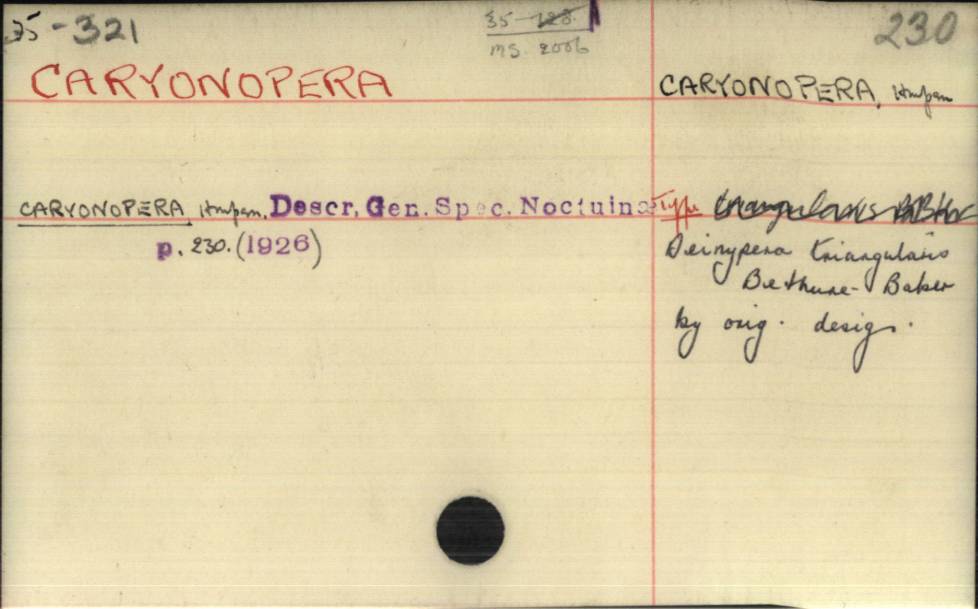 35-321
35-128.
MS. 2006
230
CARYONOPERA
CARYONOPERA, Hmpsn
CARYONOPERA, Hmpsn. Descr. Gen. Spec. Noctuinae
p. 230. (1926)
Type triangularis B-Bkr
Deinypena triangularis
Bethune-Baker
by orig. desig.